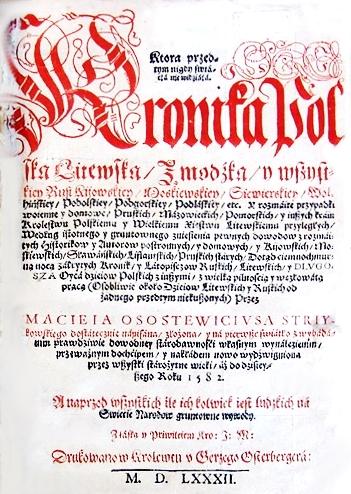 Ktora przed-
tym nigdy świá-
tłá nie widziáłá.
Kronika Pol
ska Litewska/ Zmodźka/ y wszyst-
kiey Rusi Kijowskiey/ Moskiewskiey/ Siewierskiey/ Wol-
hińskiey/ Podolskiey/ Podgorskiey/ Podláskiey/ etc. Y rozmáite przypadki
woienne y domowe/ Pruskich/ Mázowieckich/ Pomorskich/ y inszych kráin
Krolestwu Polskiemu y Wielkiemu Xięstwu Litewskiemu przyległych/
Według istotnego y gruntownego zniesienia pewnych dowodow z rozmái-
tych Historikow y Autorow postronnych/ y domowych/ y Kijowskich/ Mo-
skiewskich/ Sławáńskich/ Liflantskich/ Pruskich stárych/ Dotąd ciemnochmur-
ną nocą zákrytych Kronik/ y Látopiszcow Ruskich/ Litewskich/ y DLVGO-
SZA Oycá dzieiow Polskich z inszymi/ z wielką pilnością y węzłowátą
pracą (Osobliwie około Dzieiow Litewskich y Ruskich od
żadnego przedtym niekuszonych) Przez
MACIEIA OSOSTEWICIVSA STRIY-
kowskiego dostátecznie nápisána/ złożona/ y ná pierwsze świátło z wybádá-
nim prawdziwie dowodney stárodawności własnym wynálezienim/
przeważnym dochcipem/ y nakłádem nowo wydźwigniona
przez wszystki stárożytne wieki/ áż do dzisiey-
szego Roku 1582.
A naprzod wszystkich ile ich kolwiek iest ludzkich ná
Świecie Narodow gruntowne wywody.
Z łáską y Priwileiem Kro: J: M:
Drukowano w Krolewcu v Gerzego Osterbergerá:
M. D. LXXXII.